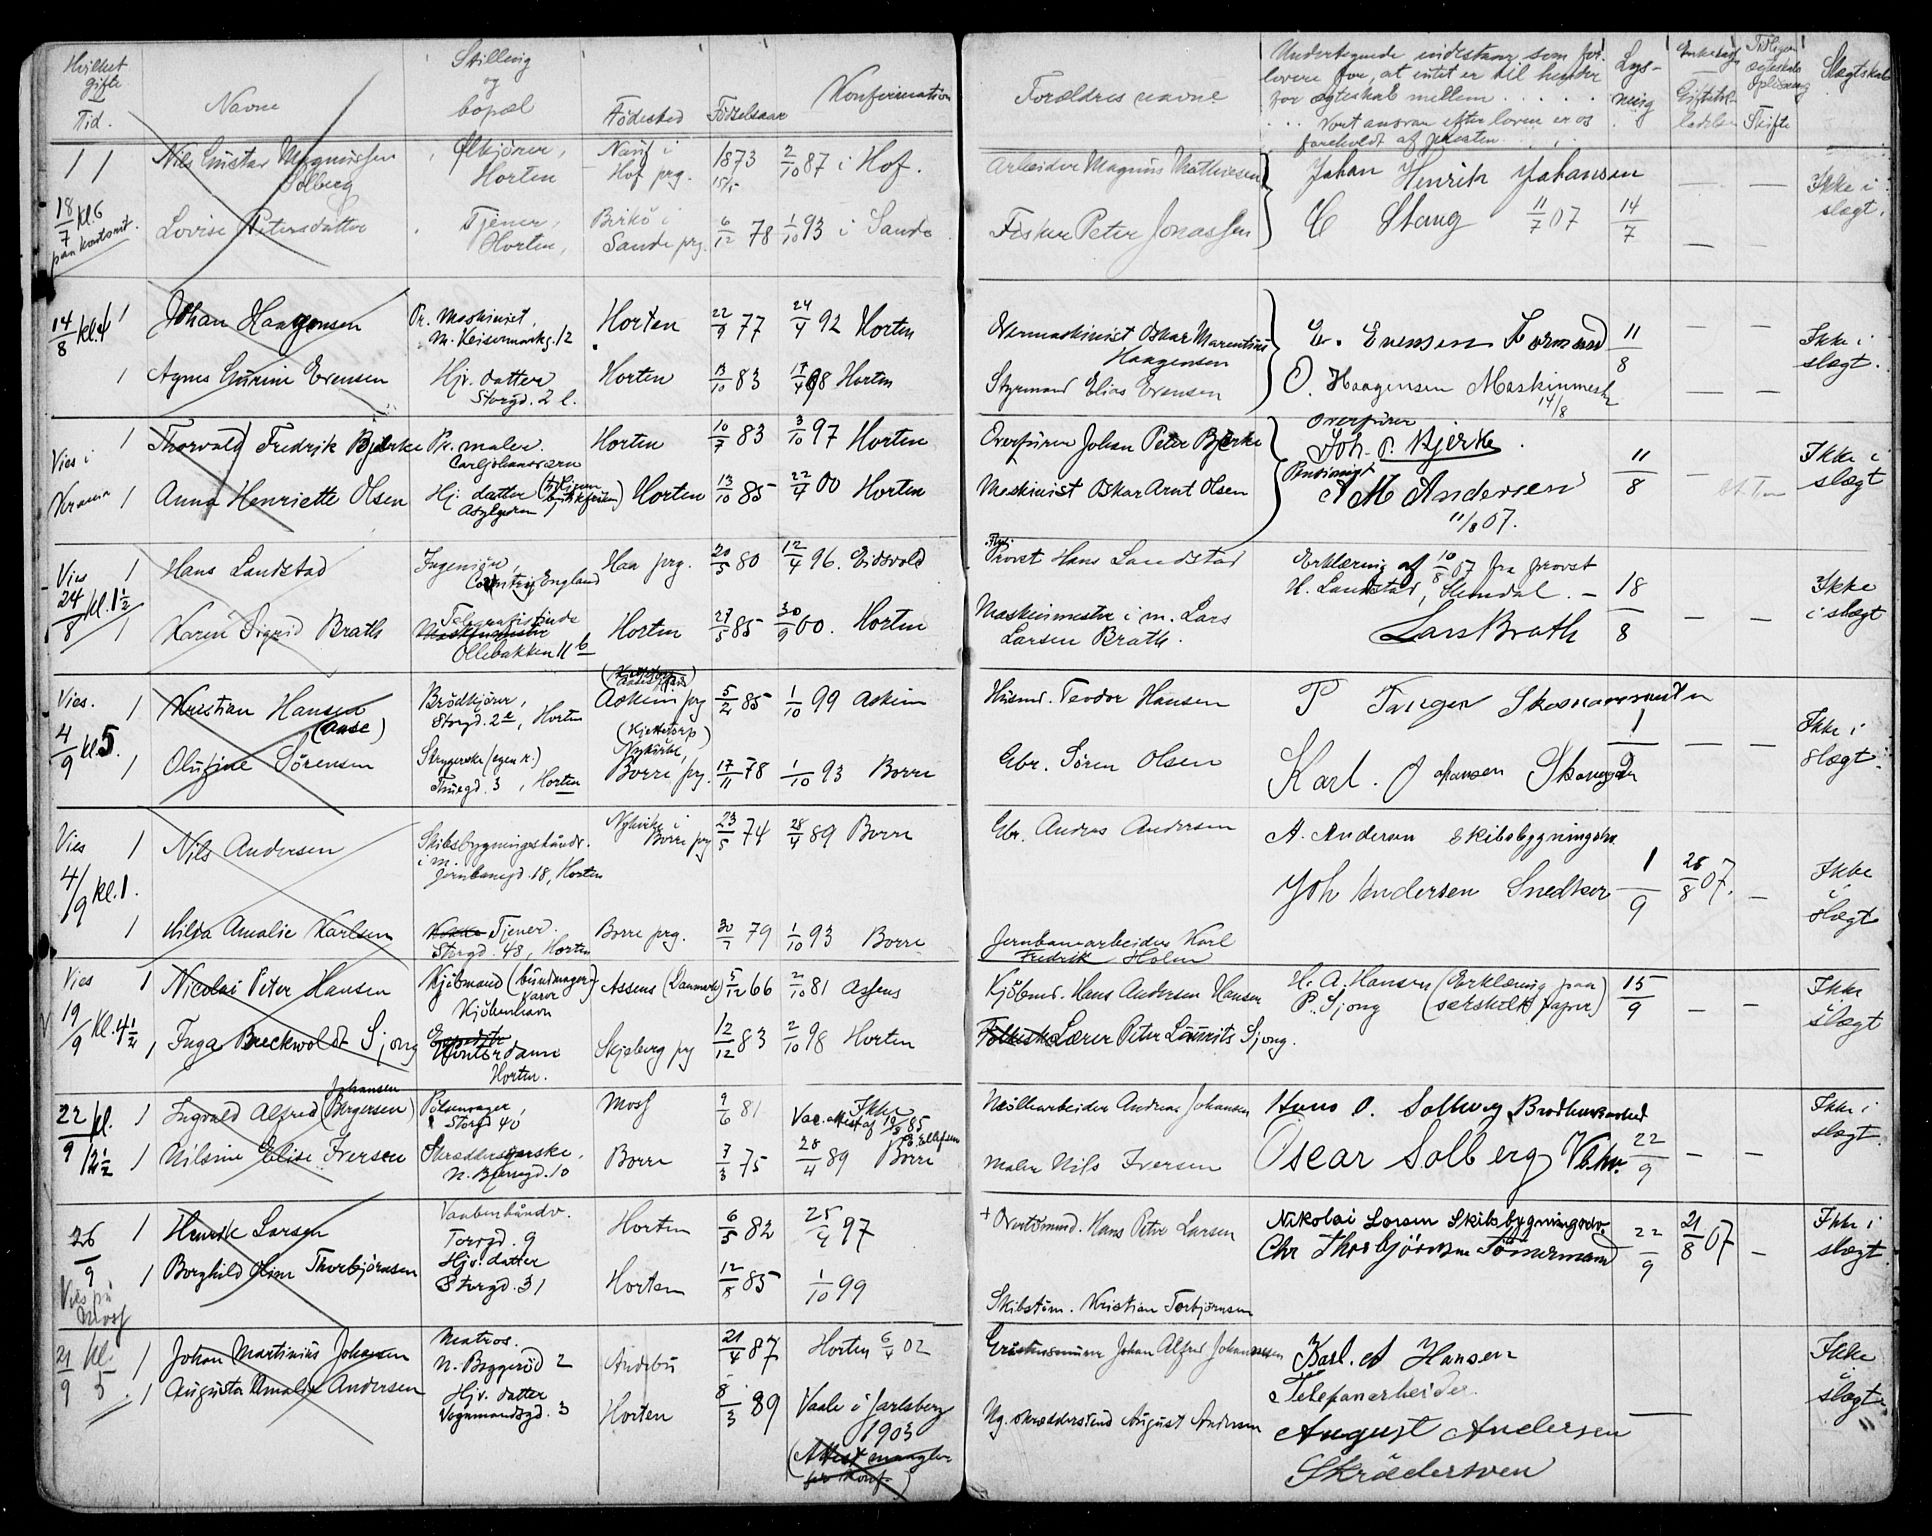 Hvilket gifte / Tid.
Navne
Stilling og bopæl
Fødested
Fødselsaar
Konfirmation
Forældres navne
Undertegnede indestaar som forlovere for, at intet er til hinder for ægteskab mellem . . . . . Vort ansvar efter loven er os foreholdt af presten
Lysning
Slægtskab
1 1 Nils Gustav Magnussen Solberg Ølkjører, Horten Hof prg. 1873 15/5 2/10 87 i Hof. Arbeider Magnus Mathiesen Johan Henrik Johansen Ikke i slægt.
18/7 kl. 6 paa kontoret. Lovise Petersdatter Tjener, Horten, Sande prg. 6/12 78 1/10 93 i Sande Fisker Peter Jonassen C Stang 11/7 07 14/7
14/8 kl. 4 1 Johan Haagensen Pr. Maskinist. M. Keisermarksg. 12 Horten 22/9 77 24/4 92 Horten Overmaskinist Oskar Marentius Haagensen E. Evensen Formand 11/8 Ikke i slægt.
1 Agnes Gurine Evensen Hjv. datter Storgd. 2 Horten 13/10 83 17/4 98 Horten Styrmand Elias Evensen O. Haagensen Maskinmest 14/8
Vies i 1 Thorvald Fredrik Bjerke Pr. maler. Carljohansværn Horten 10/7 83 3/10 97 Horten Overfürer Johan Peter Bjerke Overfürer Joh. P. Bjerke 11/8 Ikke i slægt
1 Anna Henriette Olsen Hj. datter Horten 13/10 85 22/4 00 Horten Maskinist Oskar Arnt Olsen A M Andersen 11/8 07.
Vies 24/8 kl. 1 1/2 1 Hans Landstad Ingeniør, Coventry England Haa prg. 20/5 80 12/4 96. Eidsvold Provst Hans Landstad Erklæring af 10/8 07 fra provst H. Landstad, Slemdal. 18/8 Ikke i slægt
1 Karen Sigrid Brath Telegrafistinde Ollebakken 11 b Horten 27/5 85 30/9 00. Horten Maskinmester i m. Lars Larsen Brath. Lars Brath
Vies. 4/9 kl 5. 1 Kristian Hansen (Aase) Brødkjører, Storgd. 2, Horten Askim prg 5/2 85 1/10 99 Askim Husmd. Teodor Hansen P Tangen Skomagermester 1/9 Ikke i slægt.
1 Olufine Sørensen Strygerske (egen r.) Thuegd. 3, Horten Nykirke, Borre prg. 17/11 78 1/10 93 Borre Gbr. Søren Olsen Karl. Johansen
Vies 4/9 kl. 1. 1 Nils Andersen Skibsbygningshåndv. i m. Jernbanegd. 18, Horten Nykirke i Borre prg 23/5 74 28/4 89 Borre Gbr. Andreas Andersen A. Anderson Skibsbygningshv. Joh Andersen Snedker 1/9 28/8 07. Ikke i slægt
1 Hilda Amalie Karlsen Tjener. Storgd. 48, Horten Borre prg. 30/7 79 1/10 93 Borre Jernbanearbeider Karl Fredrik Holm
Vies 19/9 kl. 4 1/2 1 Nicolai Peter Hansen Kjøbmand Kjøbenhavn Assens (Danmark) 5/12 66 2/10 81 Assens Kjøbmd. Hans Andersen Hansen H. A. Hansen P. Sjong (Erklæring paa særskilt papir) 15/9 Ikke i slægt
1 Inga Breckwoldt Sjong Kontordame Horten. Skjeberg prg 12/12 83 2/10 98 Horten Lærer Peter Laurits Sjong.
22/9 kl. 12 1/2 1 Ingvald Alfred (Bergersen) Johansen Pølsemager, Storgd 40 Moss 9/6 81 Ikke Vac. attest af 19/9 85 Møllearbeider Andreas Johansen Hans O. Solberg 22/9 Ikke i slægt.
1 Nilsine Elise Iversen Skreddersyerske, N. Bjerregd. 10 Borre 7/3 75 28/4 89 Borre Maler Nils Iversen Oscar Solberg
26/9 Vies på Moss 1 Henrik Larsen Vaabenhåndv. Torvgd. 9 Horten 6/5 82 25/4 97 + Hans Peter Larsen Nikolai Larsen Skibsbygningsarb Chr Thorbjørnsen Tömmermand 22/9 21/8 07 Ikke i slægt
1 Borghild Oline Thorbjørnsen Hjv. datter Storgd. 31 Horten 12/8 85 1/10 99 Skibstöm. Kristian Torbjørnsen
21/9 kl. 5 1 Johan Martinius Johansen Matros. N. Byggeröd 2 Andebu 21/4 87 Horten 6/4 02 Johan Alfred Johannessen Karl. A Hansen Telefonarbeider. Ikke i slægt
1 Augusta Amalie Andersen Hjv. datter Vognmandsgd. 3 Horten 8/3 89 Vaale i Jarlsberg 1903 (Attest mangler for Konf.) August Andersen August Andersen Skrädersven